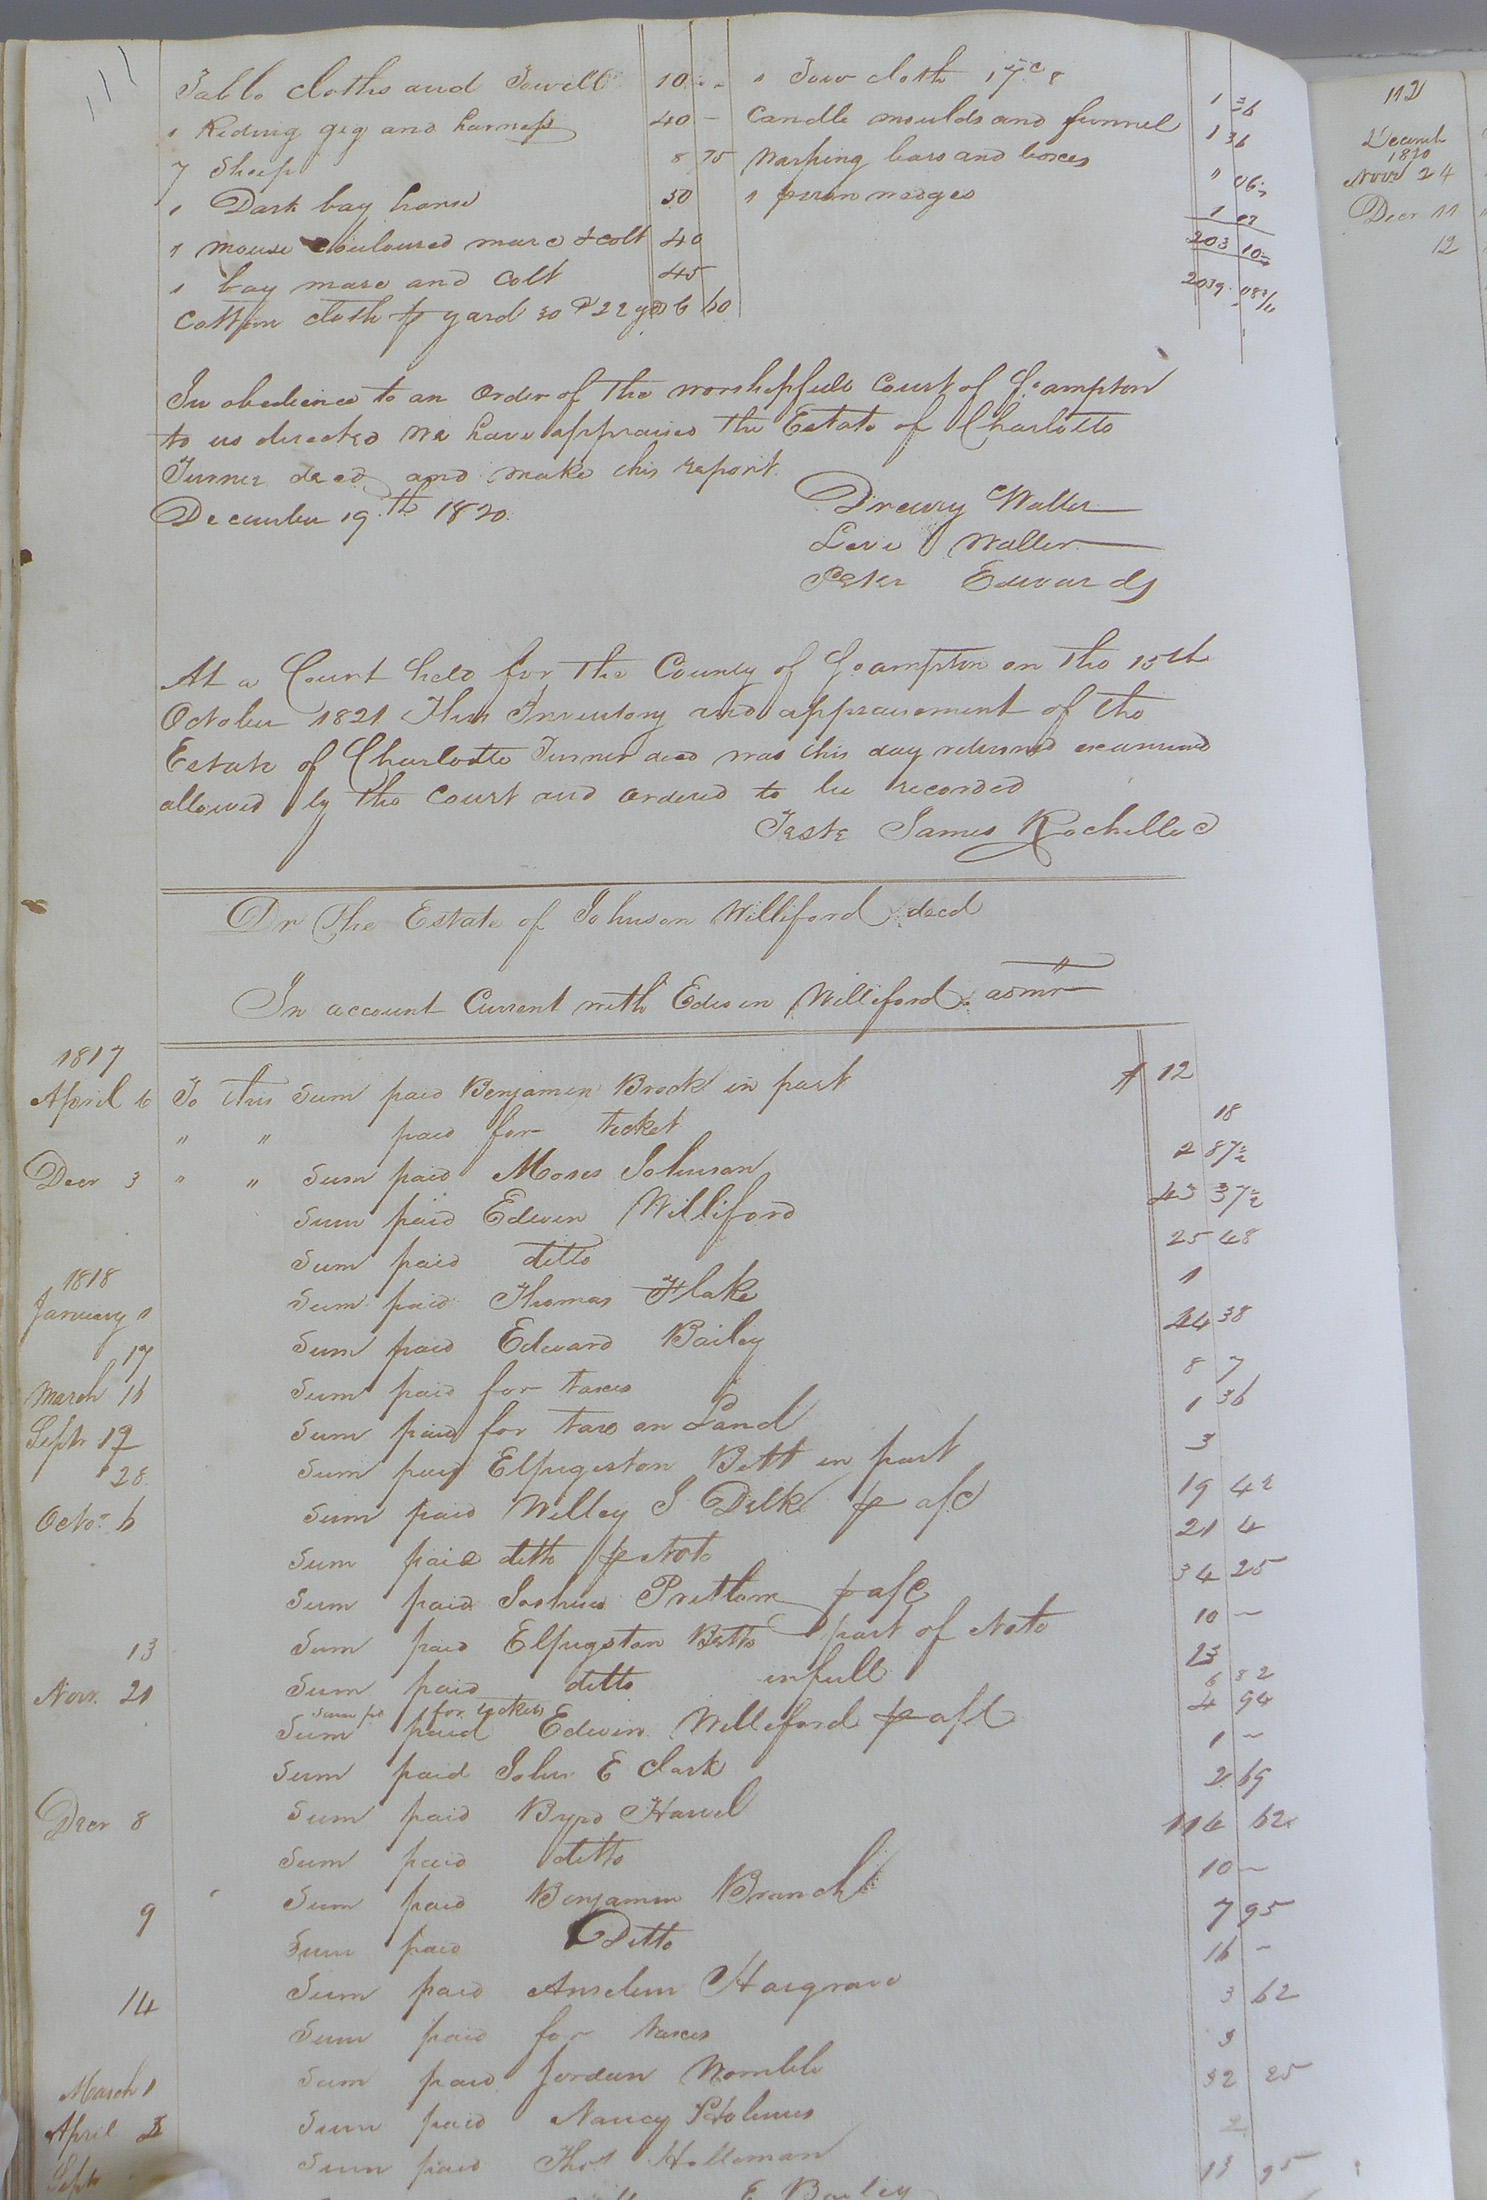 111
Table cloths and Towells 10 - -
1 Riding gig and harness 40 -
7 Sheep 8 75
1 Dark bay horse 50
1 mouse couloured mare & colt 40
1 bay mare and Colt 45
Cotton cloth yard 30 22 yds 6 60
1 Tow cloth 1 36
Candle moulds and funnel 1 36
Warping bars and boxes " 06
1 wedges 1 07
203 10
2039 08
In obedience to an order of the worshipfull Court of S:ampton
to us directed we have appraised the Estate of Charlotte
Turner decd and make this report
December 19th 1820
Drewry Waller
Levi Waller
Peter Edwards
At a Court held for the County of So:ampton on the 15th
October 1821 This Inventory and appraisement of the
Estate of Charlotte Turner decd was this day returned examined
allowed by the Court and ordered to be recorded
Teste James Rochelle C
Dr The Estate of Johnson Williford decd
In account Current with Edwin Williford admr
1817
April 6 To this Sum paid Benjamin Brock in part $ 12
" " paid for ticket 18
Decr 3 " " Sum paid Moses Johnson 2 87½
Sum paid Edwin Williford 43 37½
Sum paid ditto 25 48
1818
January 1 Sum paid Thomas Flake 1
17 Sum paid Edward Bailey 24 38
March 16 Sum paid for taxes 8 7
Septr 12 Sum paid for tax on Land 1 36
28 Sum paid Elpugiston Bett in part 3
Octor 6 Sum paid Willey J Delk p a/c 19 42
Sum paid ditto p Note 21 4
Sum paid Joshua Pretlow p a/c 34 25
13 Sum paid Elpugston Betts part of Note 10 -
Novr 21 Sum paid ditto in full 23
Sum pd for tickets 6 82
Sum paid Edwin Williford p a/c 4 94
Sum paid John E Clark 1 -
Decr 8 Sum paid Byrd Harvel 2 69
Sum paid ditto 114 62
9 Sum paid Benjamin Branch 10 -
Sum paid Ditto 7 95
14 Sum paid Anselm Hargrave 16 -
Sum paid for taxes 3 62
March 1 Sum paid Jordan Womble 3
April Sum paid Nancy Holmes 32 25
Septr Sum paid Thos Holleman 2
E Bailey 13 95
112
Decemb
1820
Novr 24
Decr 11
12